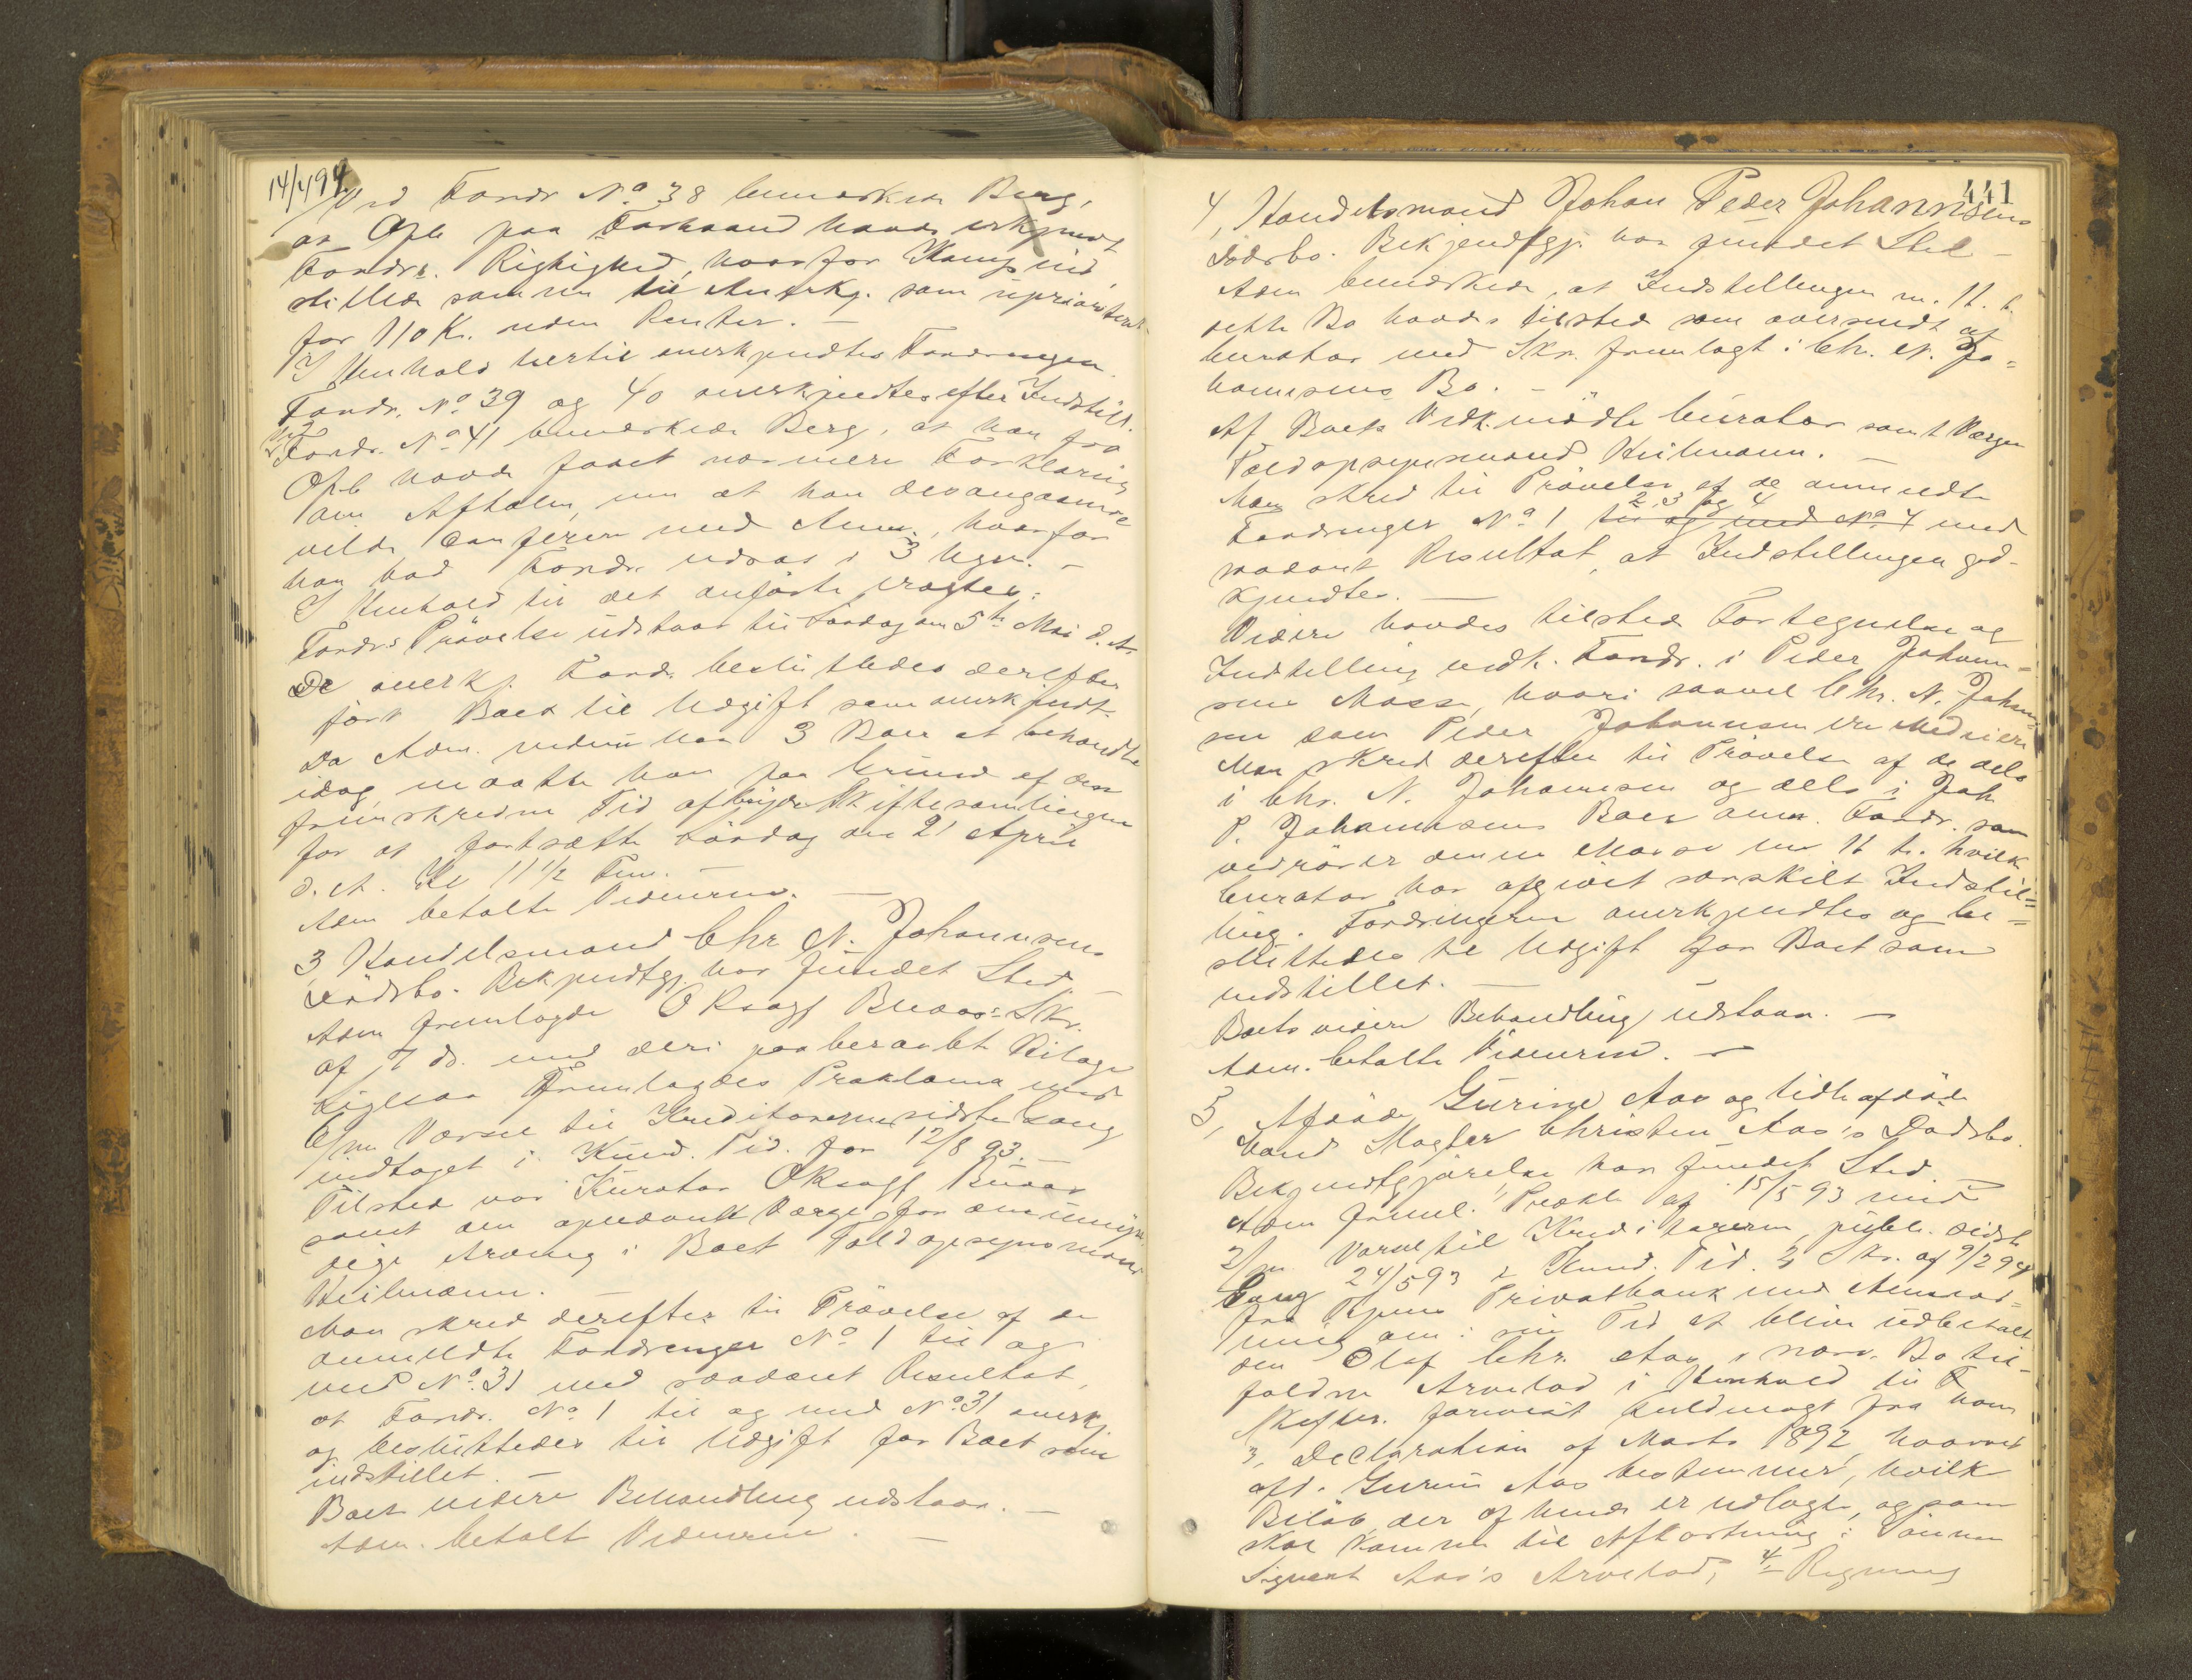 14/4 94
Ved Fordr. No. 38 bemærkede Berg,
at Opb. paa Forhaand havde erkjendt
Fordrs. Rigtighed, hvorfor Kamp ind
stillede samme til Anerkj. som uprioriteret
for 110 Kr. uden Renter. —
I Henhold hertil anerkjendtes Fordringen.
Fordr. No. 39 og 40 anerkjendtes efter Indstill.
Ved Fordr. No. 41 bemærkede Berg, at han fra
Opb. havde faaet nærmere Forklaring
om Aftalen, men at han desangaaende
vilde konferere med Anm., hvorfor
han bad Fordr. udsat i 3 Uger. —
I Henhold til det anførte vragtes:
Fordrs Prøvelse udstaar til Lørdag den 5te Mai d. A.
De anerkj. Fordr. besluttedes derefter
ført Boet til Udgift som anerkjendt.
Da Adm. endnu har 3 Boer at behandle
idag, maatte han paa Grund af den
fremskredne Tid afbryde Skiftesamlingen
for at fortsætte Lørdag den 21 April
d. A. Kl 11 1/2 Fm. —
Adm betalte Vidnerne. —
3, Handelsmand Chr. N. Johannesens
Dødsbo. Bekjendtgj. har fundet Sted. —
Adm fremlagde O Rsagf. Buaas's Skr.
af 7 ds. med deri paaberaabt Bilag.
Ligesaa fremlagdes Proklama med
6/m Varsel til Kreditorerne sidste Gang
indtaget i Kund. Tid. for 12/8 93. —
Tilstede var Kurator ORsagf. Buaas
samt den opnævnte Værge for den umyn
dige Arving i Boet Toldopsynsmand
Heilmann. —
Man skred derefter til Prøvelse af de
anmeldte Fordringer No. 1 til og
med No. 31 med saadant Resultat,
at Fordr. No. 1 til og med No. 31 anerkj.
og besluttedes til Udgift for Boet som
indstillet. —
Boets videre Behandling udstaar. —
Adm. betalt Vidnerne. —
441
4, Handelsmand Johan Peder Johannesens
Dødsbo. Bekjendtgj. har fundet Sted —
Adm bemærkede, at Indstillingen m. H. t.
dette Bo havdes tilstede som oversendt af
Curator med Skr. fremlagt i Chr. N. Jo=
hannesens Bo. —
Af Boets Vedk. mødte Curator samt Værgen
Toldopsynsmand Heilmann. —
Man skred til Prøvelse af de anmeldte
Fordringer No. 1 2, 3 og 4 til og med No. 4 med
saadant Resultat, at Indstillingen god-
kjendtes. —
Videre havdes tilstede Fortegnelse og
Indstilling vedk. Fordr. i Peder Johann=
sens Masse, hvori saavel Chr. N. Johanne
sen som Peder Johannesen er Medeiere
Man skred derefter til Prøvelse af de dels
i Chr. N. Johannesen og dels i Joh
P. Johannesens Boer anm. Fordr. som
vedrører denne Masse m. H. t. hvilke
Curator har afgivet særskilt Indstil=
ling. Fordringerne anerkjendtes og be=
sluttedes til Udgift for Boet som
indstillet. —
Boets videre Behandling udstaar. —
Adm. betalte Vidnerne. —
5, Afdøde Gurine Aas og tidl. afdøde
Mand Slagter Christen Aas's Dødsbo.
Bekjendtgjørelse har fundet Sted. —
Adm freml. 1, Prokl. af 15/5 93 med
2/m Varsel til Kreditorerne, publ. sidste
Gang 24/5 93 i Kund. Tid. 2, Skr. af 9/2 94
fra Privatbank med Anmod=
ning om i sin Tid at blive udbetalt
den Olaf Chr. Aas i nærv. Bo til-
faldne Arvelod i Henhold til
Skifter. forevist Fuldmagt fra ham
3, Declaration af Marts 1892, hvorved
afd. Gurine Aas bestemmer, hvilke
Beløb, der af hende er udlagte, og som
skal komme til Afkortning i Sønnen
Sigvart Aas's Arvelod, 4, Regning